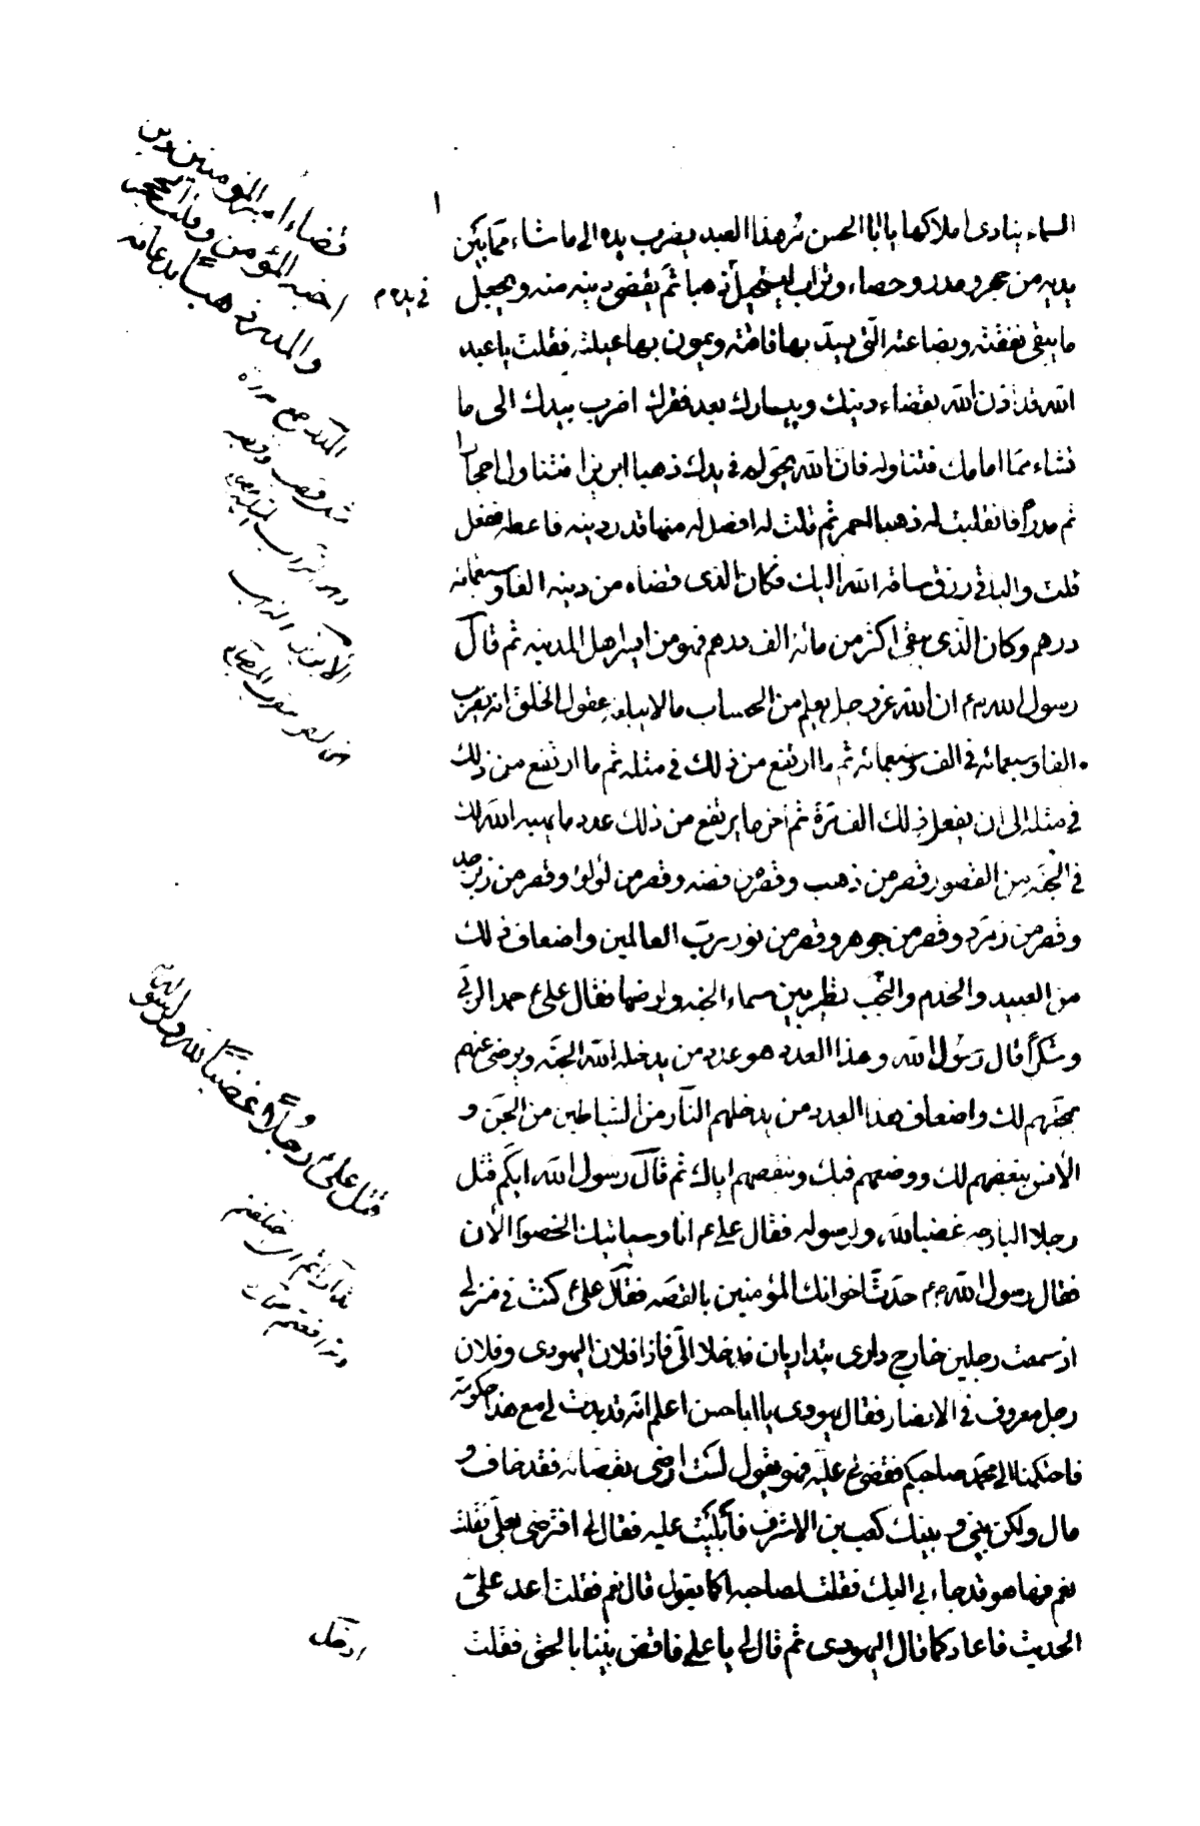 السماء ينادى املاكها يا ابا الحسن مر هذا العبد يضرب يده الى ما شاء مما بين
يديه من حجر ومدر وحصاء وتراب ليستحيل في يده ذهبا ثم يقضى دينه منه ويجعل
ما يبقى نفقته وبضاعته التى يسد بها فاقته ويمون بها عيلته فقلت يا عبد
الله قد اذن الله بقضاء دينك ويسارك بعد فقرك اضرب بيدك الى ما
تشاء مما امامك فتناوله فان الله يحوله في يدك ذهبا ابريزا فتناول احجارا
ثم مدرا فانقلبت له ذهبا احمر ثم قلت له افصل له منها قدر دينه فاعطه ففعل
قلت والباقى رزق ساقه الله اليك فكان الذى قضاه من دينه الفا وسبعمائه
درهم وكان الذى بقى اكثر من مائة الف درهم فهو من ايسر اهل المدينه ثم قال
رسول الله ان الله عز وجل يعلم من الحساب ما لا يبلغه عقول الخلق انه يضرب
الفا وسبعمائه في الف وسبعمائه ثم ما ارتفع من ذلك في مثله ثم ما ارتفع من ذلك
في مثله الى ان يفعل ذلك الف مرة ثم اخر ما يرتفع من ذلك عدد ما يهبه الله لك
في الجنه من القصور قصر من ذهب وقصر من فضه وقصر من لؤلؤ وقصر من زبرجد
وقصر من زمرد وقصر من جوهر وقصر من نور رب العالمين واضعاف ذلك
من العبيد والخدم والنجب تطير بين سماء الجنه وارضها فقال على ع حمدا لربى
وشكرا قال رسول الله وهذا العدد هو عدد من يدخله الله الجنه ويرضى عنهم
بمحبتهم لك واضعاف هذا العدد من يدخلهم النار من الشياطين من الجن و
الانس ببغضهم لك ووضعهم فيك وتنقصهم اياك ثم قال رسول الله ايكم قتل
رجلا البارحه غضبا لله ولرسوله فقال على ع انا وسياتيك الخصوم الان
فقال رسول الله حدث اخوانك المؤمنين بالقصه فقال على ع كنت في منزلى
اذ سمعت رجلين خارج دارى يتداريان فدخلا الى فاذا فلان اليهودى وفلان
رجل معروف في الانصار فقال اليهودى يا ابا حسن اعلم انه قد بدت لى مع هذا حكومة
فاحتكمنا الى محمد صاحبكم فقضى لى عليه فهو يقول لست ارضى بقضائه فقد حاف و
مال ولكن بينى وبينك كعب بن الاشرف فابيت عليه فقال لى افترضى بعلى فقلت
نعم فها هو قد جاء بى اليك فقلت لصاحبه اكما يقول قال نعم فقلت اعد على
الحديث فاعاد كما قال اليهودى ثم قال لى يا على فاقض بيننا بالحق فقمت
قضاء امير المؤمنين دين
اخيه المؤمن وقلب الحجر
والمدر ذهبا بدعائه
قتل على ع رجلا غضبا لله ولرسوله
ادخل